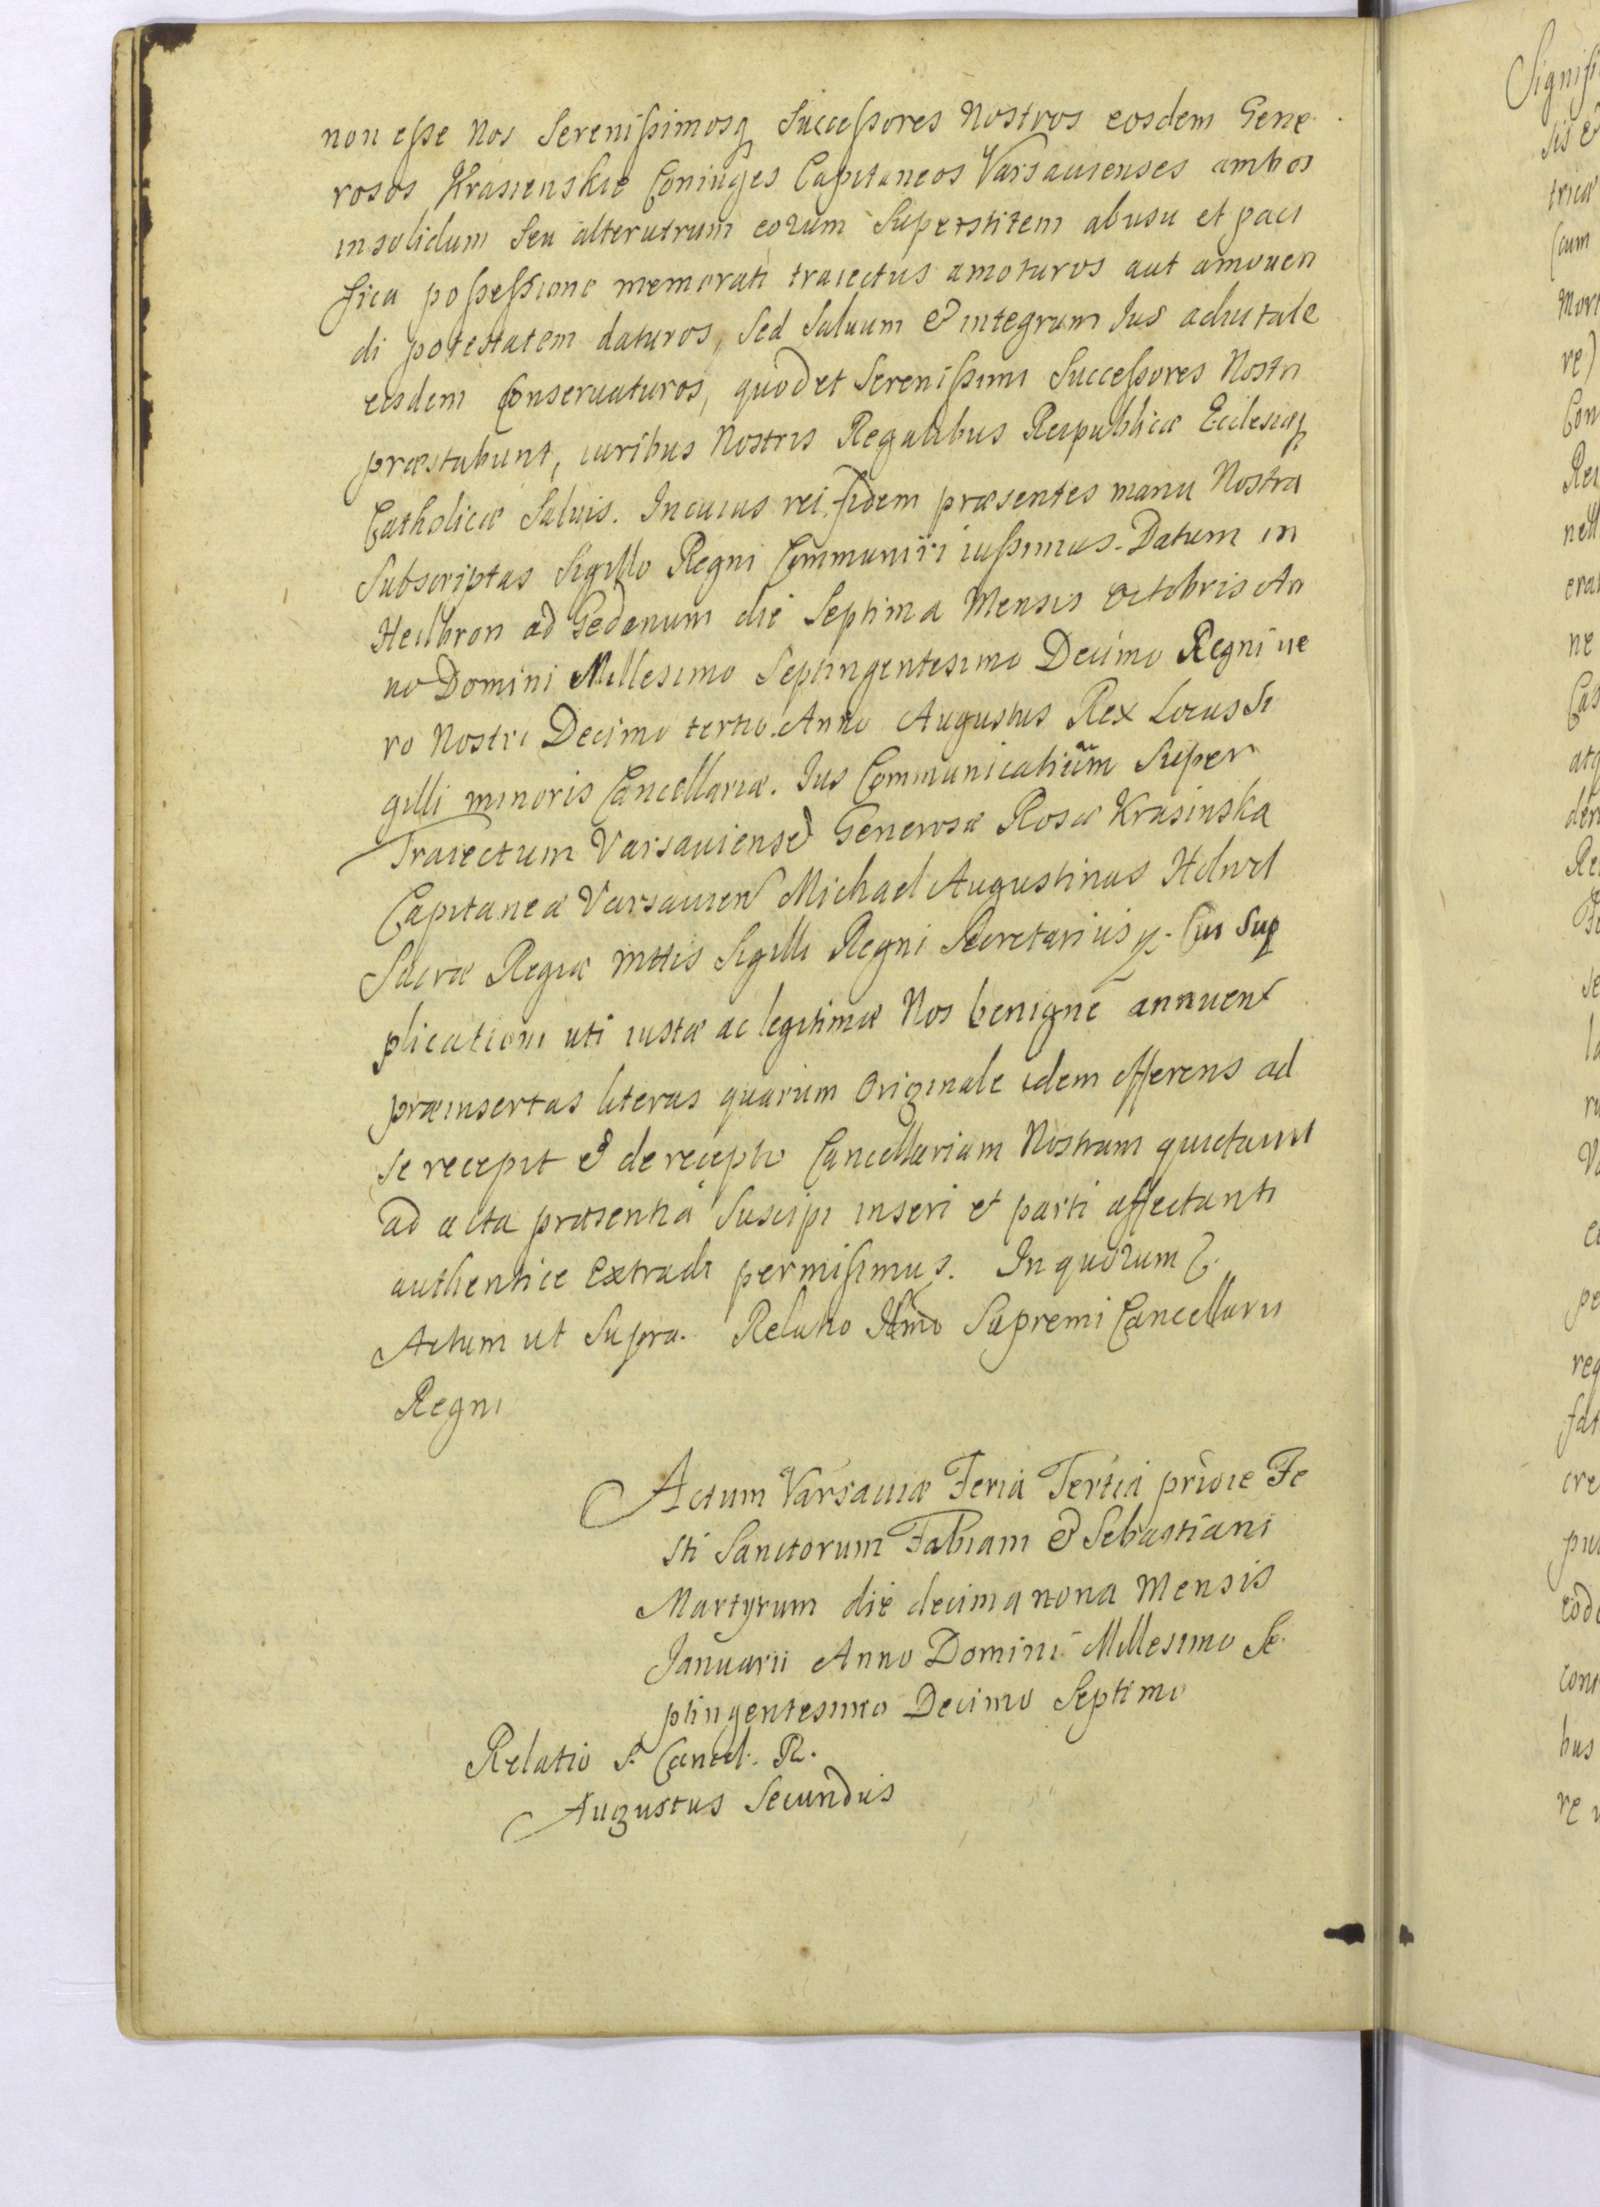 non esse Nos Serenissimosq Successores Nostros eosdem Gene
rosos Krasienskie Coniuges Capitaneos Varsavienses ambos
insolidum seu alterutrum eorum Superstitem abusu et paci
fica possessione memorati traiectus amoturos aut amouen
di potestatem daturos, Sed Saluum & integrum Ius aduitale
eisdem Conseruaturos, quod et Serenissimi Successores Nostri
præstabunt, iuribus Nostris Regalibus Reipublicæ Ecclesiæq
Catholicæ Saluis. In cuius rei fidem præsentes manu Nostra
Subscriptas Sigillo Regni Communiri iussimus. Datum in
Heilbron ad Gedanum die Septima Mensis Octobris An
no Domini Millesimo Septingentesimo Decimo Regni ue
ro Nostri Decimo tertio Anno Augustus Rex Locus Si
gilli minoris Cancellariæ. Ius Communicatiuum Super
Traiectum Varsauiense Generosæ Rosæ Krasinska
Capitaneæ Varsauien Michael Augustinus
Sacræ Regiæ Mttis Sigilli Regni Secretarius Cui Sup
plicationi uti iustæ ac legitimæ Nos benigne annuent
præinsertas literas quarum Originale idem offerens ad
se recepit & de recepto Cancellariam Nostram quietauit
ad acta præsentia Suscipi inseri et parti affectanti
authentice extradi permisimus. In quorum &.
Actum ut Supra. Relatio Illmo Supremi Cancellarii
Regni
Actum Varsauiæ Feria Tertia pridie Fe
sti Sanctorum Fabiani & Sebastiani
Martyrum die decima nona Mensis
Ianuarii Anno Domini Millesimo Se
ptingentesimo Decimo Septimo
Relatio S. Cancel. R.
Augustus Secundus